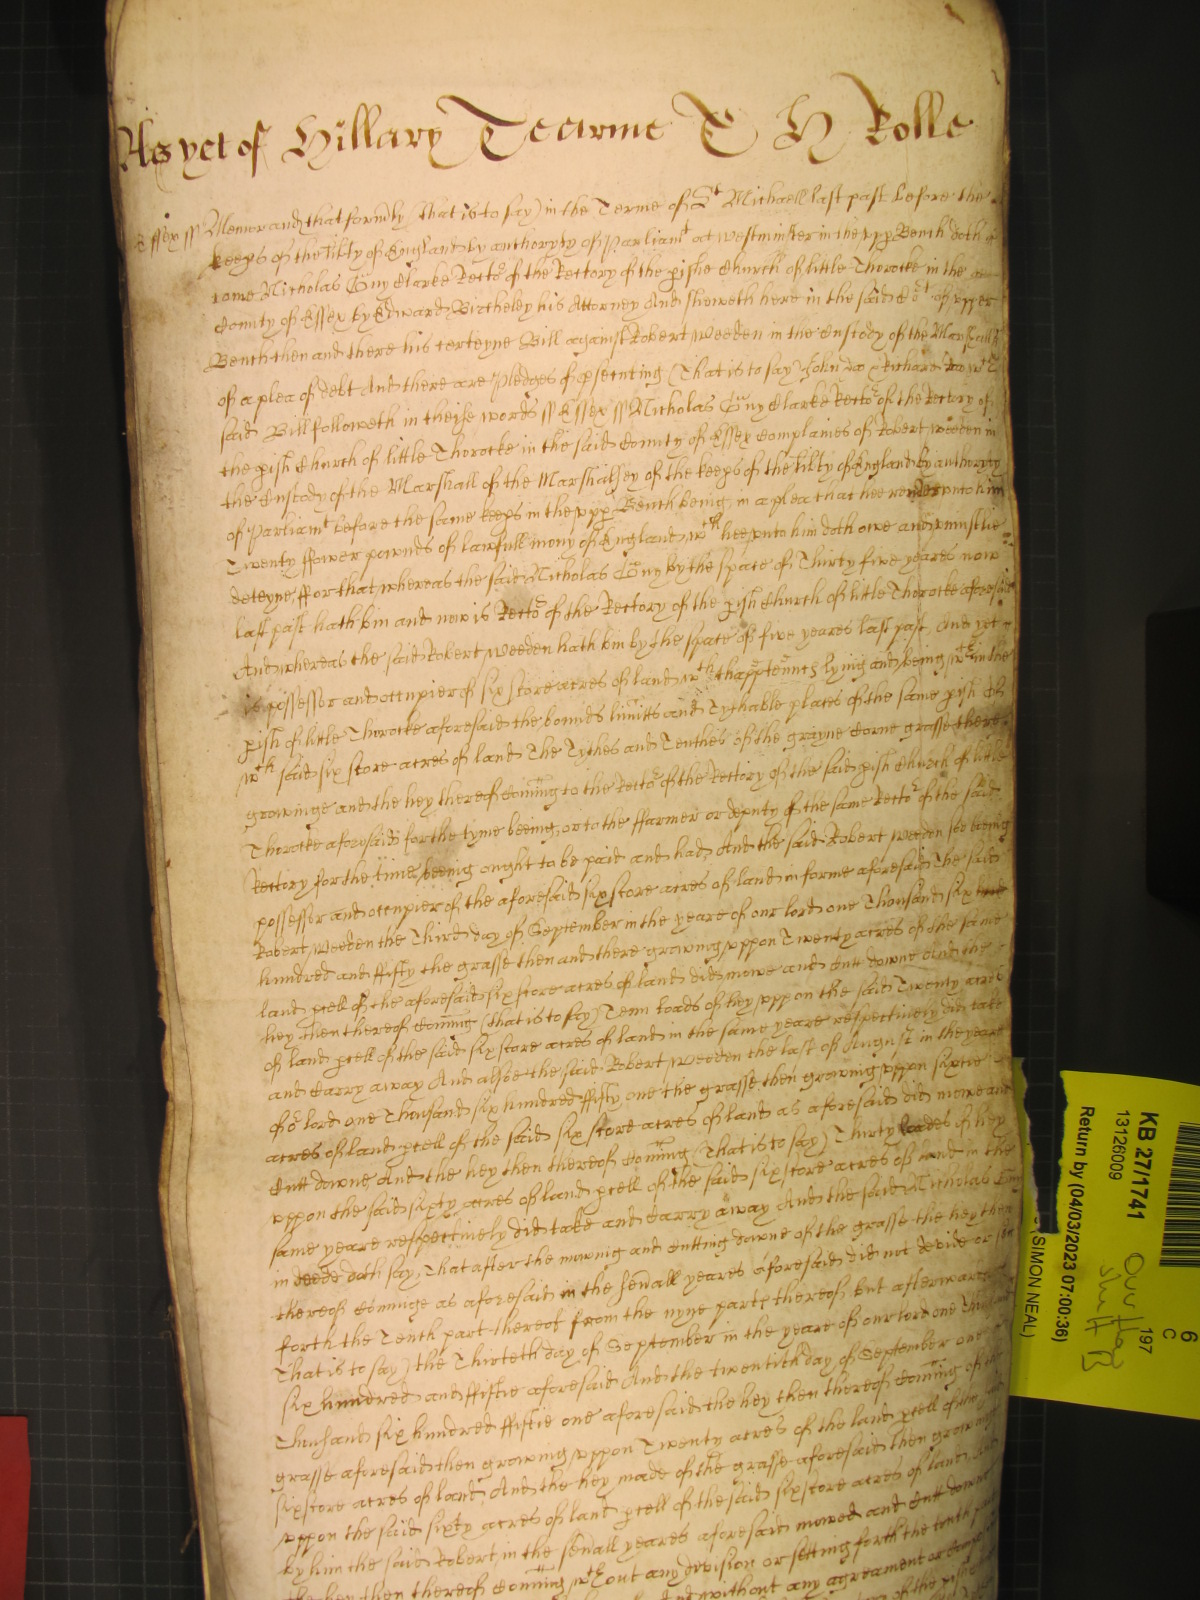 As yet of Hillary Tearme T H Rolle
Essex ss Memorand that formly (that is to say) in the Terme of St Michaell last past before the
keeps of the libty of England by authoryty of Parliamt at Westminster in the vpp Bench doth
come Nicholas Guy Clarke Rector of the Rectory of the pishe Church of little Thorocke in the
County of Essex by Edward Bircheley his Attorney And sheweth here in the said Cort of vpper
Bench then and there his certeyne Bill against Robert Weeden in the Custody of the Marshall
of a plea of debt And there are Pledges of psecuting (That is to say) John doo & Richard Roo wch
said Bill followeth in theise words ss Essex ss Nicholas Guy Clarke Rector of the Rectory of
the pish Church of little Thorocke in the said County of Essex Complaines of Robert Weeden in
the Custody of the Marshall of the Marshalsey of the keeps of the libty of England by authoryty
of Parliamt before the same keeps in the vpp Bench being, in a plea that hee render vnto him
Twenty ffower pownds of lawfull mony of England wch hee vnto him doth owe and vniustlie
deteyne, ffor that whereas the said Nicholas Guy by the space of Thirty five yeares now
last past hath bin and now is Rector of the Rectory of the pish Church of little Thorocke aforesaid
And whereas the said Robert Weeden hath bin by the space of five yeares last past, and yet
is possessor and occupier of six score acres of land wth thapptenncs lying and being wthin the
pish of little Thorocke aforesaid the bounds limitts and Tythable places of the same pish Of
wch said six score acres of land The Tythes and Tenthes of the grayne Corne grasse there
growinge and the hey thereof Coming to the Rector of the Rectory of the said pish Church of little
Thorocke aforesaid for the tyme being, or to the ffarmer or deputy of the same Rector of the said
Rectory for the time beeing ought to be paid and had, And the said Robert Weeden soe being
possessor and occupier of the aforesaid six score acres of land in forme aforesaid The said
Robert Weeden the Third day of September in the yeare of our lord one Thousand six
hundred and ffifty the grasse then and there growing vppon Twenty acres of the same
land pcell of the aforesaid six score acres of land did mowe and Cutt downe And the
hey then thereof Coming (that is to say) Tenn loads of hey vppon the said Twenty acres
of land pcell of the said six score acres of land in the same yeare respectively did take
and Carry away And alsoe the said Robert Weeden the last of August in the yeare
of or lord one Thousand six hundred ffifty one the grasse then growing vppon sixtie
acres of land pcell of the said six score acres of land as aforesaid did mowe and
Cutt downe And the hey then thereof Coming (That is to say) Thirty loades of hey
vppon the said sixty acres of land pcell of the said six score acres of land in the
same yeare respectively did take and Carry away And the said Nicholas Guy
in deede doth say, That after the mowing and Cutting downe of the grasse the hey then
thereof Cominge as aforesaid in the seuall yeares aforesaid did not devide or sett
forth the Tenth part thereof from the nyne parts thereof but afterwards
(That is to say) the Thirteth day of September in the yeare of our lord one Thousand
six hundred and ffiftie aforesaid And the twentith day of September one
Thousand six hundred ffiftie one aforesaid the hey then thereof Coming of the
grasse aforesaid then growing vppon Twenty acres of the land pcell of the said
six score acres of land, And the hey made of the grasse aforesaid then growing
vppon the said sixty acres of land pcell of the said six score acres of land, And
by him the said Robert in the seuall yeares aforesaid mowed and Cutt downe
the hey then thereof Coming wthout any devision or setting forth the tenth part
And without any agreement or
KB 27/1741
13126009
Return by (04/03/2023 07:00:36)
(SIMON NEAL)
197
6
C